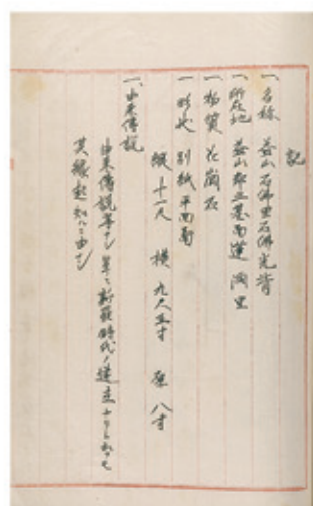 記
一、名称 益山石佛里石佛光背
一、所在地 益山郡三箕面蓮洞里
一、物質 花崗石
一、形状 別紙平面図
縦 十一尺 横 九尺五寸 厚 八寸
一、由来傳説
由来傳説等ナシ 単ニ新羅時代ノ建立ナリト
其縁起知ルニ由ナシ